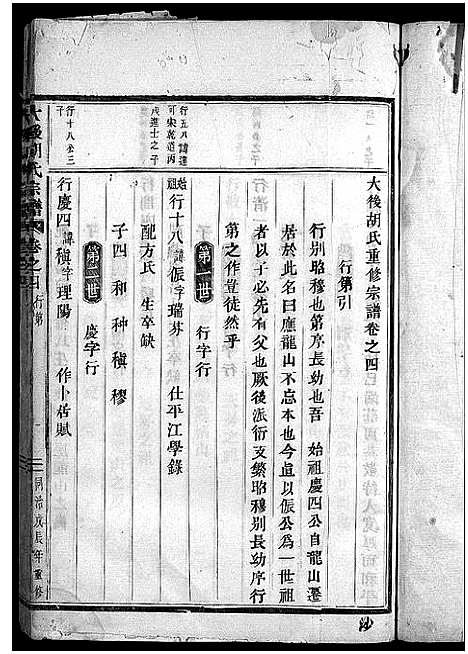 大後胡氏重修宗譜卷之四
行第引
行別昭穆也第序長幼也吾 始祖慶四公自龍山遷
居於此名曰應龍山不忘本也今直以侲公為一世祖
者以子必先有父也厥後派衍支繁昭穆別長幼序行
第之作豈徒然乎
第一世 行字行
始祖行十八諱侲字瑞芬 仕平江學錄
配方氏 生卒缺
子四 和 种 稹 穆
第二世 慶字行
行慶四諱稹字理陽 作卜居賦
行五八諱達
可宋乾道丙
戌進士之子
行十八公三
子
大後胡氏宗譜 卷之四 行第
一
同治戊辰年重修